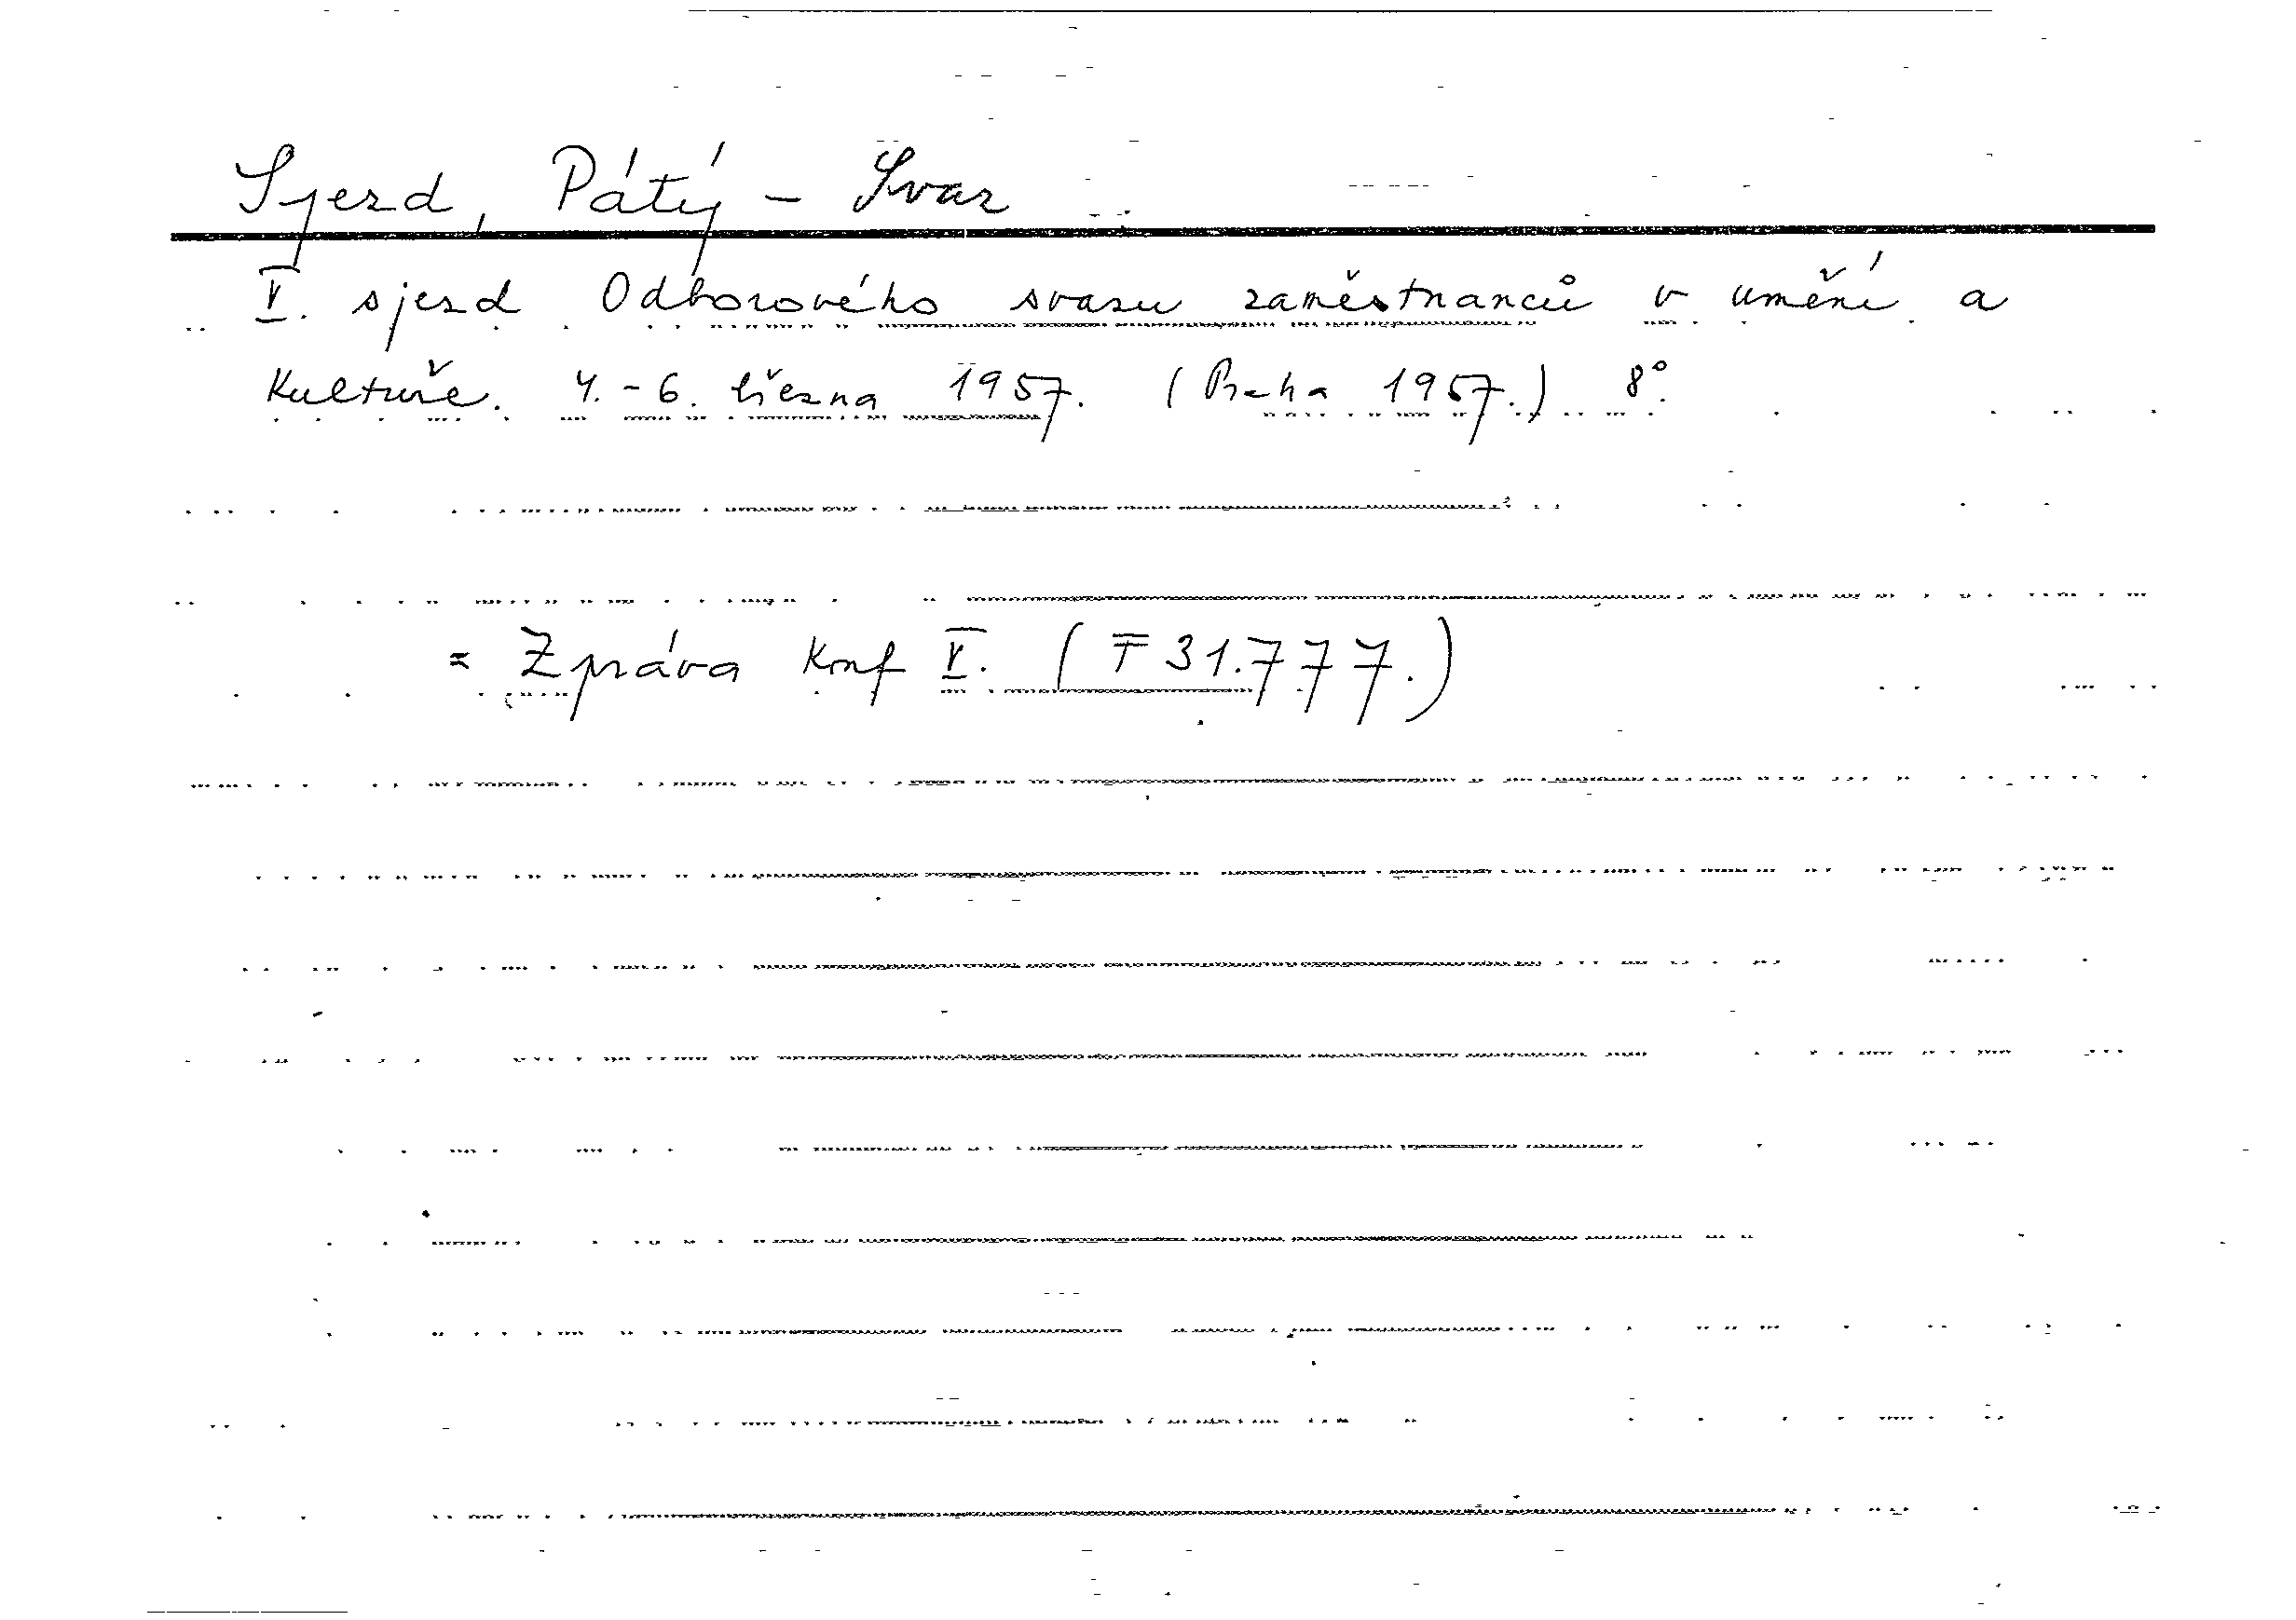 Sjezd, Pátý - Svaz
V. sjezd Odborového svazu zaměstnanců v umění a
Kultuře. 4.-6. března 1957. (Praha 1957.) 8°.
= Zpráva Konf V. (T 31.777.)